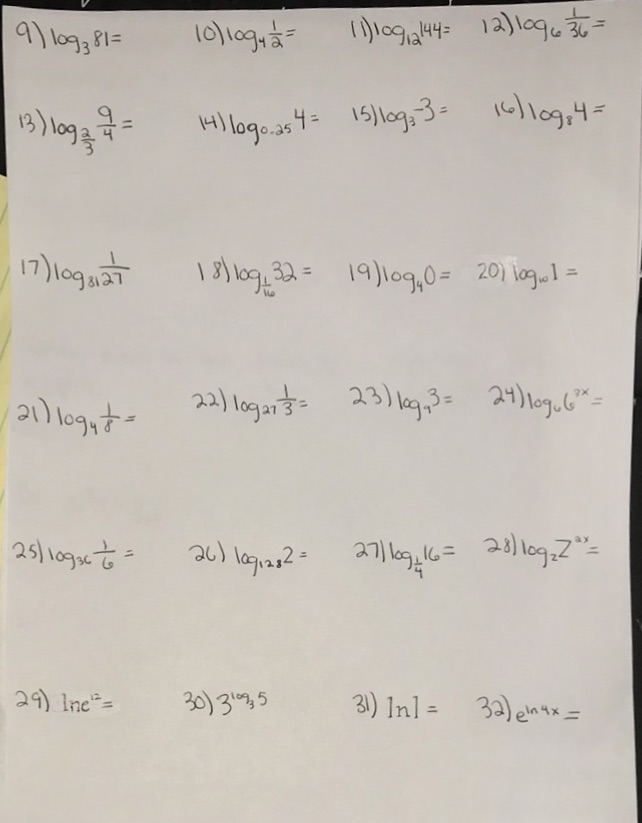 9) log₃ 81 = 10) log₄ 1/2 = 11) log₁₂ 144 = 12) log₆ 1/36 =
13) log_(2/3) 9/4 = 14) log₀.₂₅ 4 = 15) log₃ -3 = 16) log₈ 4 =
17) log₈₁ 1/27 18) log_(1/16) 32 = 19) log₄ 0 = 20) log₁₀ 1 =
21) log₄ 1/8 = 22) log₂₇ 1/3 = 23) log₉ 3 = 24) log₆ 6³ˣ =
25) log₃₆ 1/6 = 26) log₁₂₈ 2 = 27) log_(1/4) 16 = 28) log₂ 2²ˣ =
29) ln e¹² = 30) 3^(log₃ 5) 31) ln 1 = 32) e^(ln 4x) =